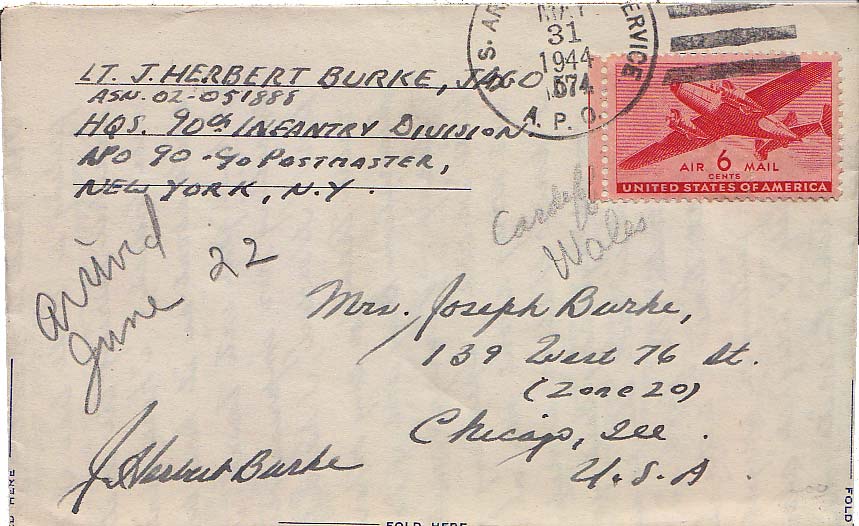 LT. J. HERBERT BURKE, JAGD
ASN. 02-051888
HQS. 90th INFANTRY DIVISION
APO 90 - % POSTMASTER,
NEW YORK, N.Y.
U.S. ARMY SERVICE
MAY
31
1944
574
A.P.O.
AIR 6 MAIL
CENTS
UNITED STATES OF AMERICA
Cardiff
Wales
arrived
June 22
Mrs. Joseph Burke,
139 West 76 St.
(Zone 20)
Chicago, Ill.
U.S.A.
J. Herbert Burke
FOLD HERE
D HERE
FOLD